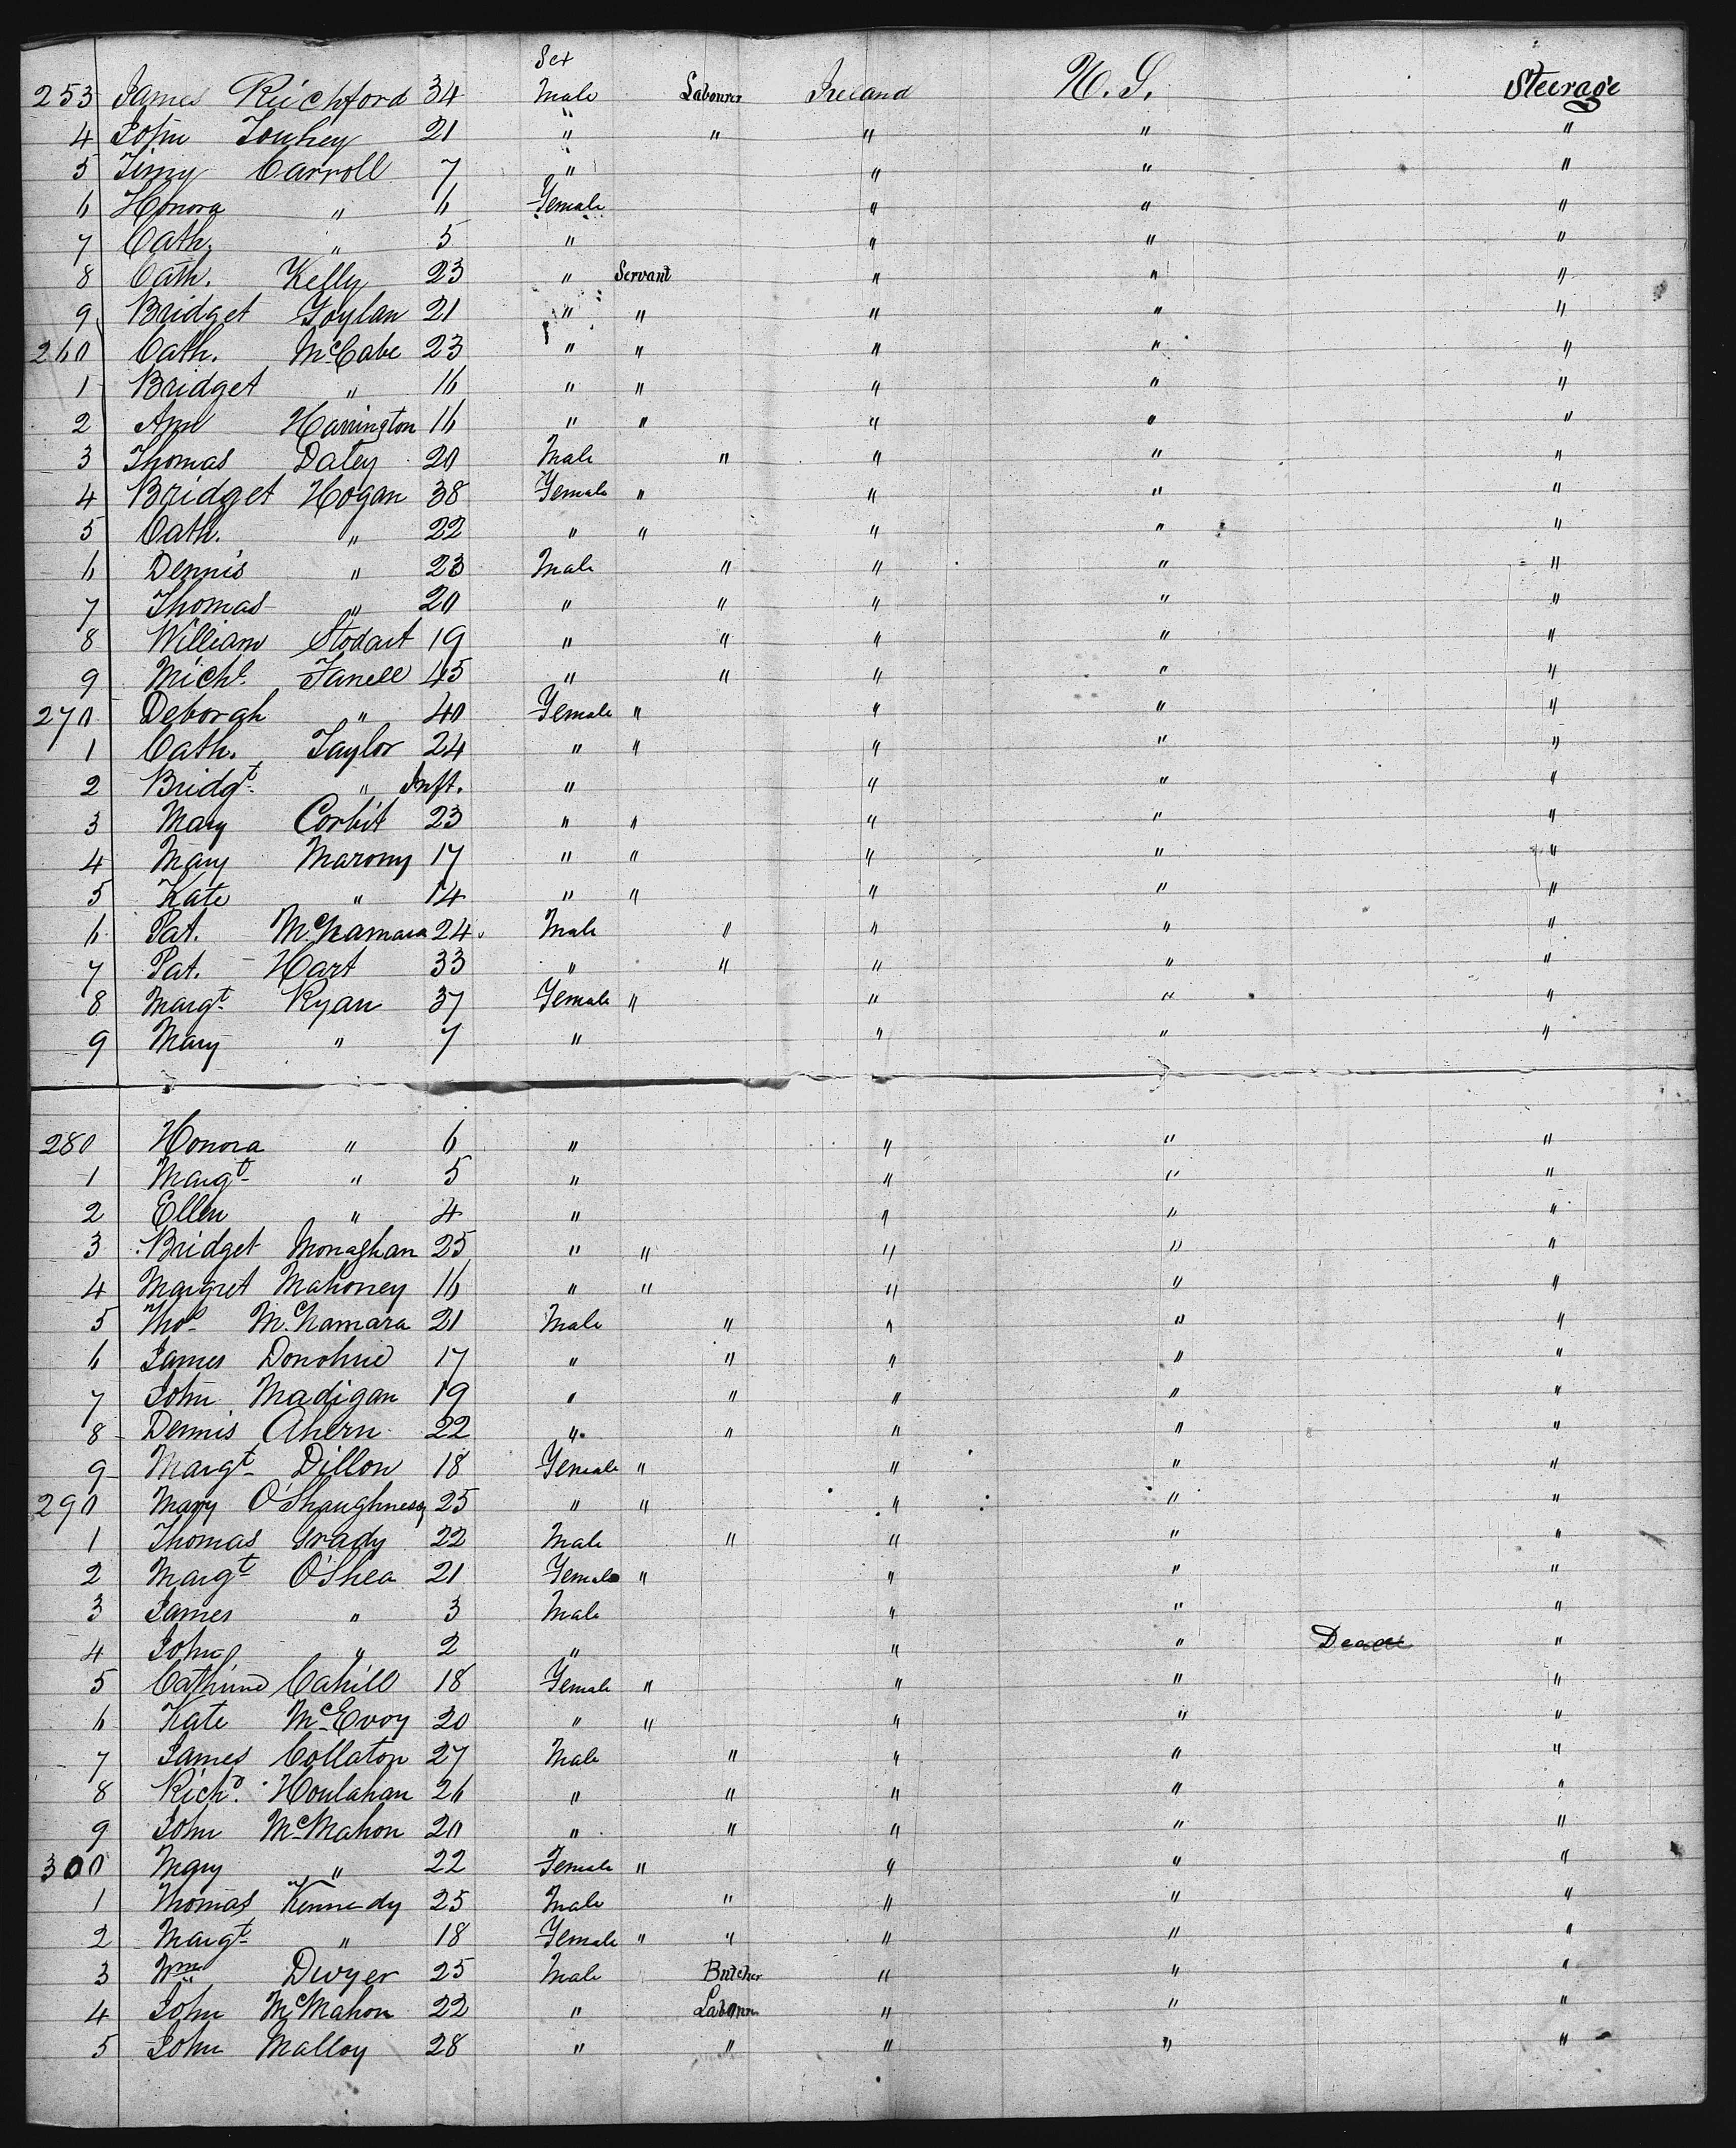 Sex
253 James Richford 34 Male Labourer Ireland U.S. Steerage
4 John Touhey 21 " " " " "
5 Timy Carroll 7 " " " "
6 Honora " 6 Female " " "
7 Cath. " 5 " " " "
8 Cath. Kelly 23 " Servant " " "
9 Bridget Foylan 21 " " " " "
260 Cath. McCabe 23 " " " " "
1 Bridget " 16 " " " " "
2 Ann Harrington 16 " " " " "
3 Thomas Daley 20 Male " " " "
4 Bridget Hogan 38 Female " " " "
5 Cath. " 22 " " " " "
6 Dennis " 23 Male " " " "
7 Thomas " 20 " " " " "
8 William Stodart 19 " " " " "
9 Michl. 45 " " " " "
270 Deborah " 40 Female " " " "
1 Cath. Taylor 24 " " " " "
2 Bridgt. " Inft. " " " "
3 Mary Corbit 23 " " " " "
4 Mary Marony 17 " " " " "
5 Kate " 14 " " " " "
6 Pat. McNamara 24 Male " " " "
7 Pat. Hart 33 " " " " "
8 Margt. Ryan 37 Female " " " "
9 Mary " 7 " " " "
280 Honora " 6 " " " "
1 Margt. " 5 " " " "
2 Ellen " 4 " " " "
3 Bridget Monaghan 25 " " " " "
4 Margret Mahoney 16 " " " " "
5 Thos. McNamara 21 Male " " " "
6 James Donohue 17 " " " " "
7 John Madigan 19 " " " " "
8 Dennis Ahern 22 " " " " "
9 Margt. Dillon 18 Female " " " "
290 Mary O'Shaughnessy 25 " " " " "
1 Thomas Grady 22 Male " " " "
2 Margt. O'Shea 21 Female " " " "
3 James " 3 Male " " "
4 John " 2 " " " Dead "
5 Cathrine Cahill 18 Female " " " "
6 Kate McEvoy 20 " " " " "
7 James Collaton 27 Male " " " "
8 Richd. Houlahan 26 " " " " "
9 John McMahon 20 " " " " "
300 Mary " 22 Female " " " "
1 Thomas Kennedy 25 Male " " " "
2 Margt. " 18 Female " " " " "
3 Wm Dwyer 25 Male Butcher " " "
4 John McMahon 22 " Labour " " "
5 John Malloy 28 " " " " "